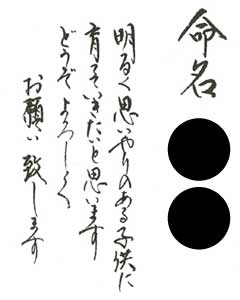 命名
明るく思いやりのある子供に
育っていきたいと思います
どうぞよろしく
お願い致します